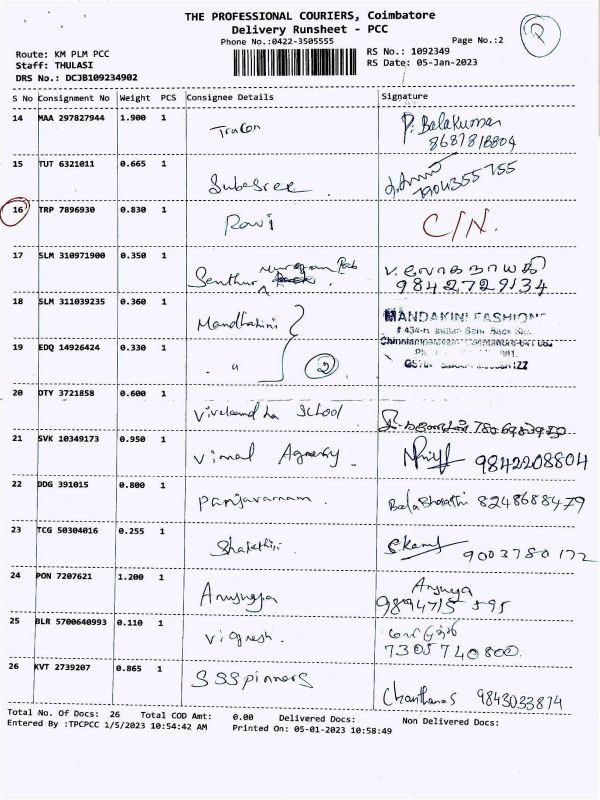 THE PROFESSIONAL COURIERS, Coimbatore
Delivery Runsheet - PCC
Phone No.:0422-3505555
Page No.:2
Route: KM PLM PCC
Staff: THULASI
DRS No.: DCJB109234902
RS No.: 1092349
RS Date: 05-Jan-2023
S No Consignment No Weight PCS Consignee Details Signature
14 MAA 297827944 1.900 1 Tracon P. Balakumar
8687818804
15 TUT 6321011 0.665 1 Subasree
16 TRP 7896930 0.830 1 Ravi C/N.
17 SLM 310971900 0.350 1 Senthur Murugan வ. லோகநாயகி
9842729134
18 SLM 311039235 0.360 1 Mandhakini MANDAKINI FASHION
19 EDQ 14926424 0.330 1 " 2
20 DTY 3721858 0.600 1 Vivekanandha School
21 SVK 10349173 0.950 1 Vimal Agency 9842208804
22 DDG 391015 0.800 1 Panjavarnam. Bala Bharathi 8248688479
23 TCG 50304016 0.255 1 Shakthi 9003780172
24 PON 7207621 1.200 1 Anusuya Anjuya
9894715595
25 BLR 5700640993 0.110 1 Vignesh.
7305740800.
26 KVT 2739207 0.865 1 SSSpinners 9843033874
Total No. Of Docs: 26 Total COD Amt: 0.00 Delivered Docs: Non Delivered Docs:
Entered By :TPCPCC 1/5/2023 10:54:42 AM Printed On: 05-01-2023 10:58:49